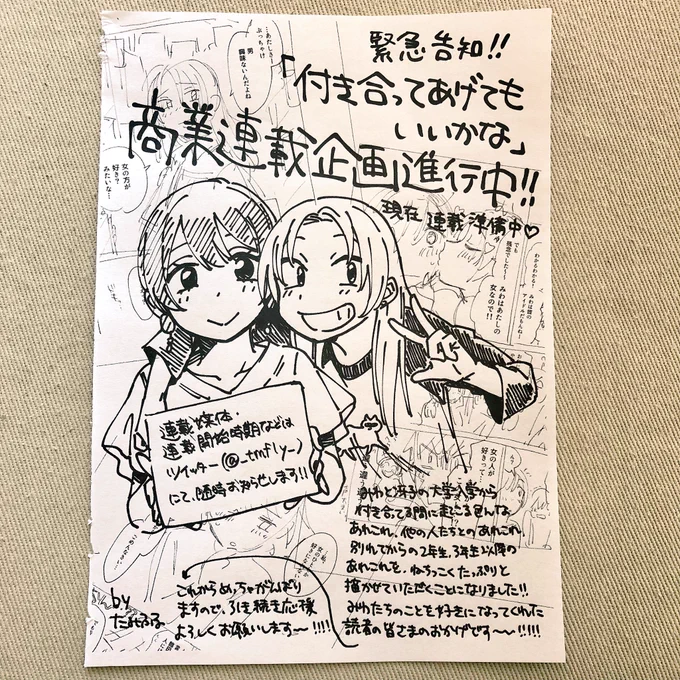 緊急告知!!
「付き合ってあげても
いいかな」
商業連載企画進行中!!
現在 連載準備中♡
…あたしさー
ぶっちゃけ
男
興味ないんだよね
女の方が
好き?
みたいな…
わかるわかる!
でも
残念でしたー!
みわはあたしの
女なので!!
女の人が
好きって…
連載媒体・
連載開始時期などは
ツイッター(@_tmfly_)
にて、随時お知らせします!!
みわと冴子の大学入学から
付き合ってる間に起こる色んな
あれこれ、他の人たちとのあれこれ、
別れてからの2年生、3年生以降の
あれこれを、ねちっこくたっぷりと
描かせていただくことになりました!!
みわたちのことを好きになってくれた
読者の皆さまのおかげです〜〜!!!!!
これからめっちゃがんばり
ますので、引き続き応援
よろしくお願いします〜!!!!
by
たみふる